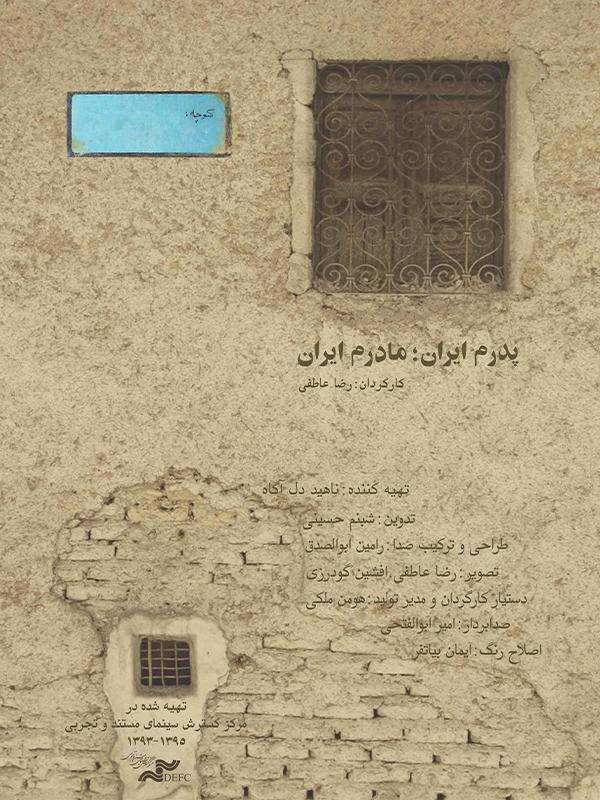 کوچه:
پدرم ایران؛ مادرم ایران
کارگردان: رضا عاطفی
تهیه کننده: ناهید دل آگاه
تدوین: شبنم حسینی
طراحی و ترکیب صدا: رامین ابوالصدق
تصویر: رضا عاطفی، افشین گودرزی
دستیار کارگردان و مدیر تولید: هومن ملکی
صدابردار: امیر ابوالفتحی
اصلاح رنگ: ایمان بیاتفر
تهیه شده در
مرکز گسترش سینمای مستند و تجربی
۱۳۹۳-۱۳۹۵
DEFC